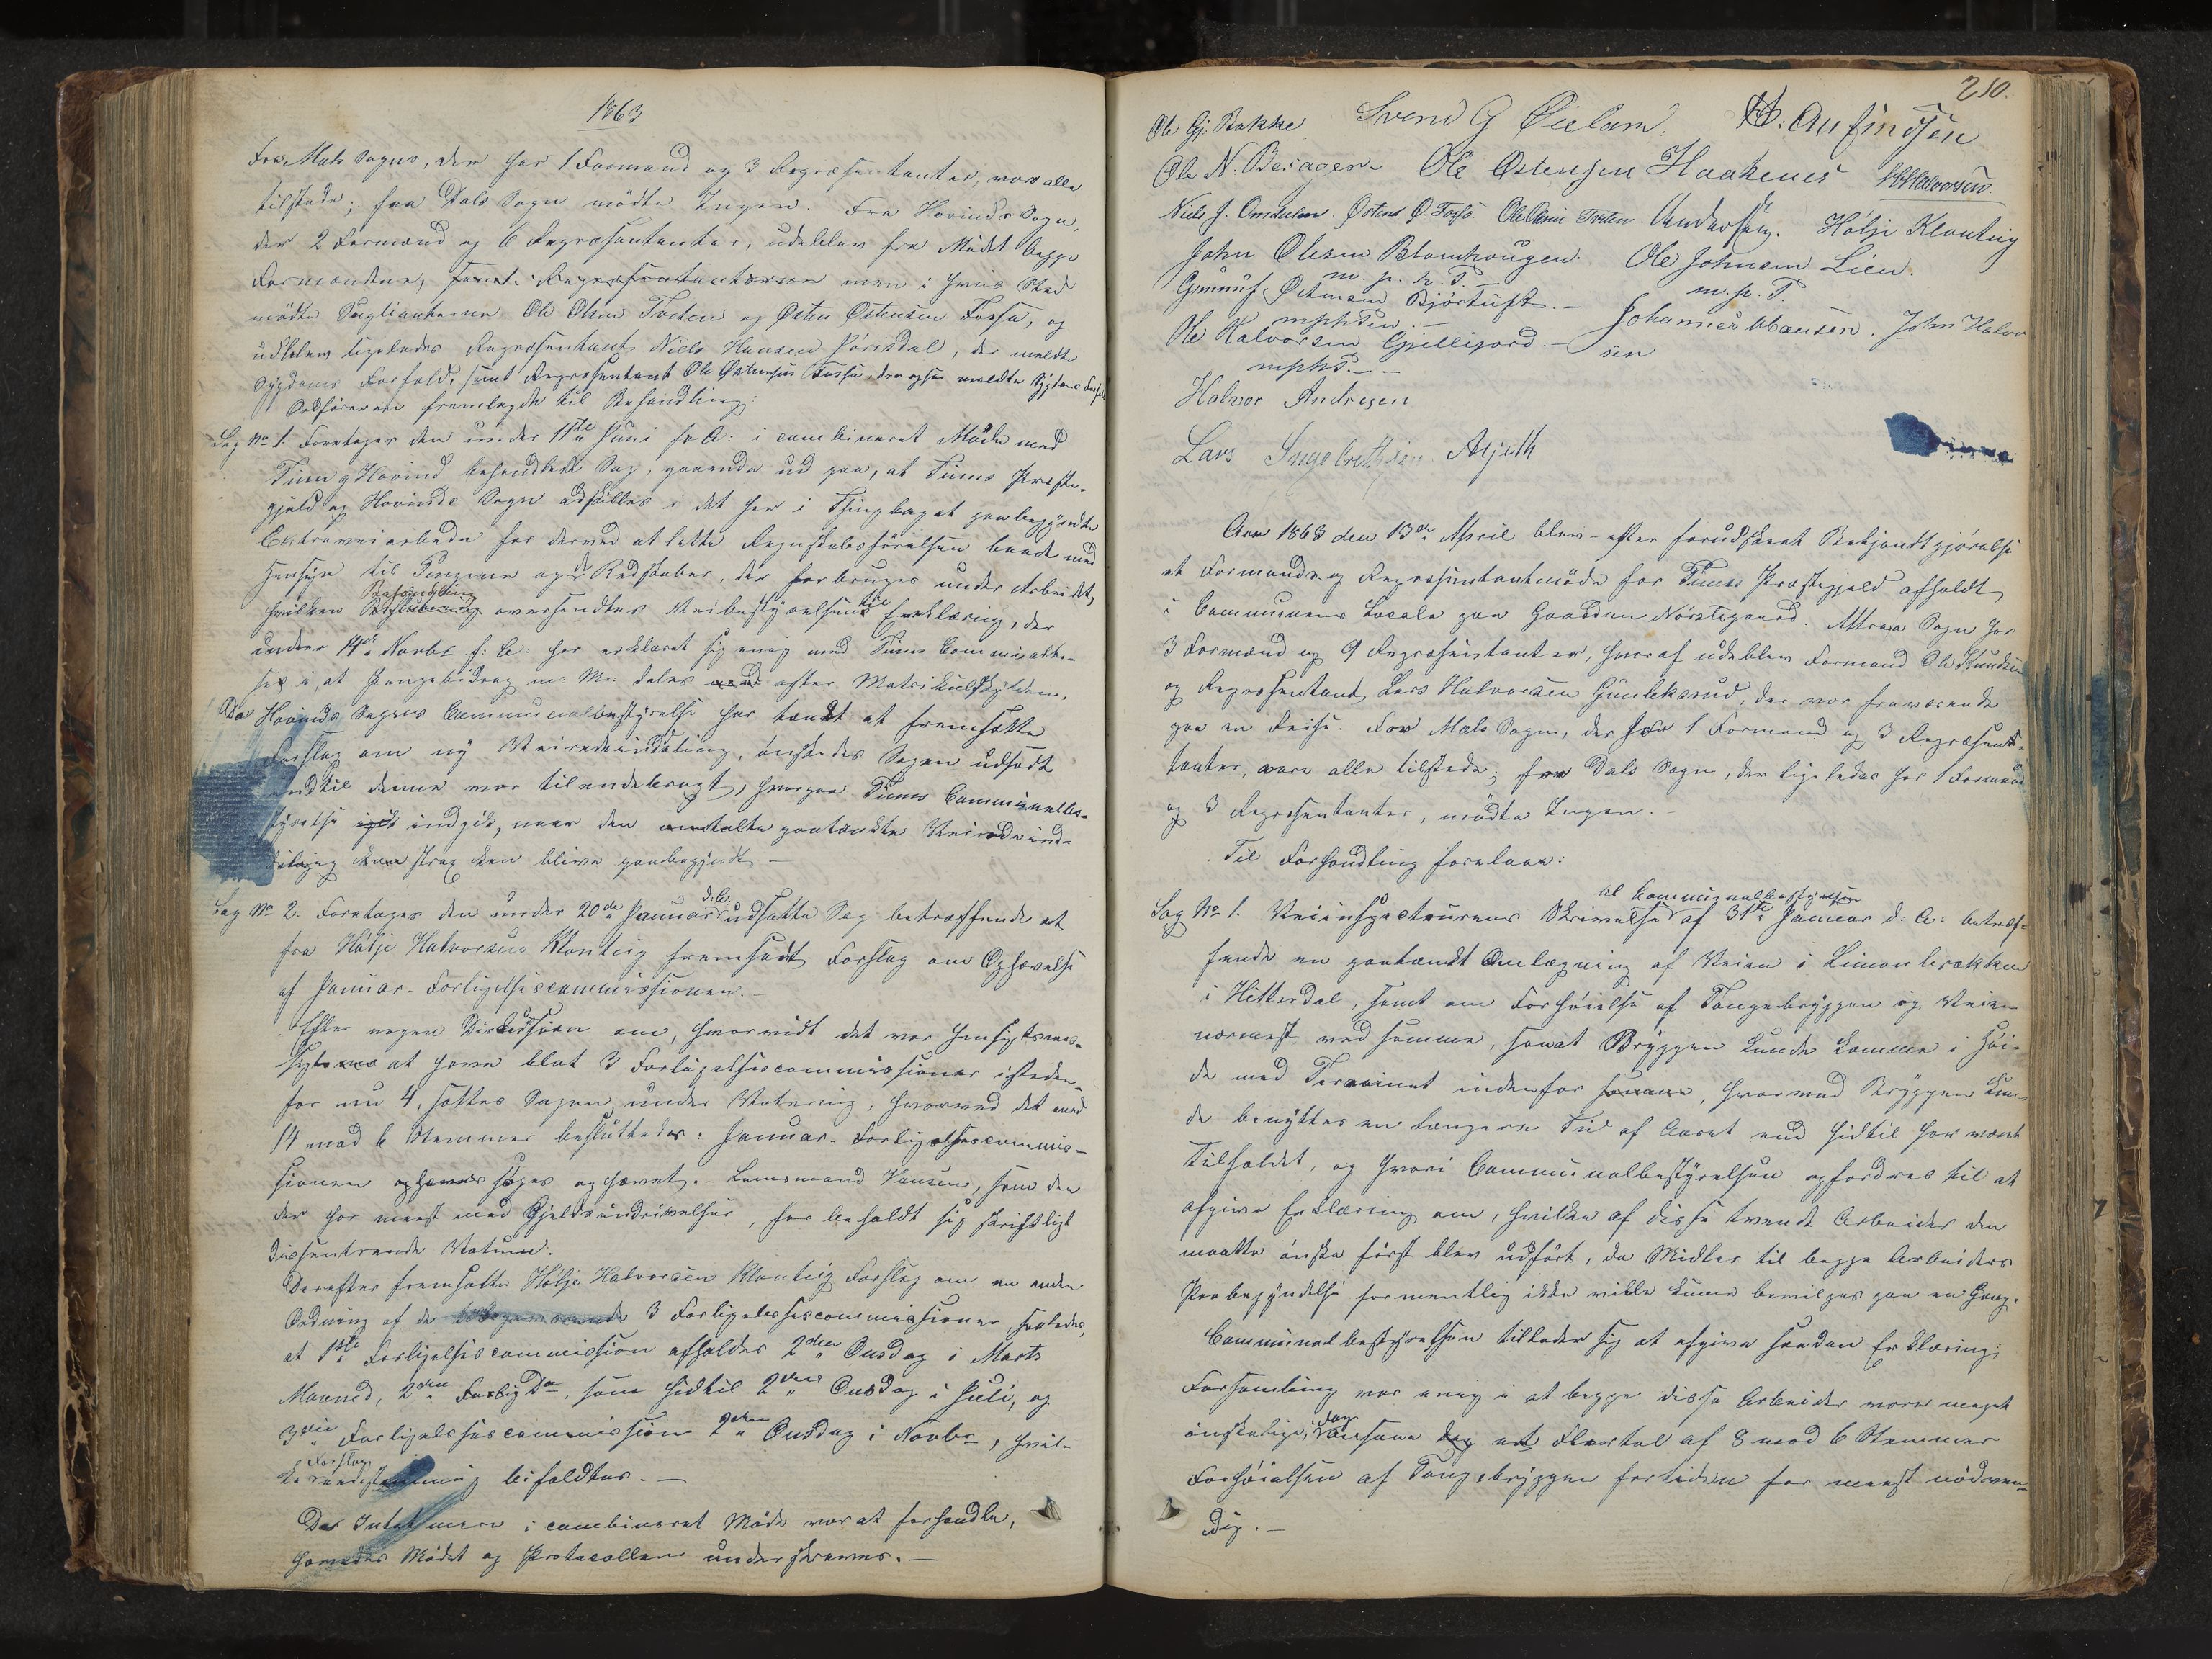 1863
Fra Mæls Sogn, der har 1 Formand og 3 Repræsentanter, vare alle
tilstede; fra Dals Sogn mødte Ingen. Fra Hovinds Sogn,
der 2 Formænd og 6 Repræsentanter, udeblev fra Mødet begge
Formændene, men i hvis Sted
mødte Suplianterne Ole Olsen Tveten og Østen Østensen Fosso, og
udeblev ligeledes Repræsentant Niels Hansen Pórisdal, der meldte
Sygdoms Forfald, samt Repræsentant Ole Østensen Fosso, der ogsaa meldte Sygdoms Forfald
Ordføreren fremlagde til Behandling:
Sag No 1. Foretages den under 11te Juni f. A: i combineret Møde med
Tinn og Hovind behandlede Sag, gaaende ud paa, at Tinns Præste-
gjeld og Hovinds Sogn adskilles i det her i Thinglaget paabegyndte
Extraveiarbeide for derved at lette Regnskabsførelsen baade med
Hensyn til Pengene og de Redskaber, der forbruges under Arbeidet,
hvilken Behandling oversendtes Veibestyrelsen til Erklæring, der
under 14de Novbr f: A: har erklæret sig enig med Tinns Communebe-
i, at Pengebidrag m: M: deles efter Matrikulskylden.
Da Hovinds Sogns Communalbestyrelse har tænkt at fremsætte
Forslag om ny Veirodeinddeling, ønskedes Sagen udsadt
indtil denne var tilendebragt, hvorpaa Tinns Communalbe-
styrelse indgik, naar den paatænkte Veirodeind-
deling strax kan blive paabegyndt. —
Sag No 2. Foretages den under 20de Januar d: A: udsatte Sag betræffende et
fra Hølje Halvorsen Klonteig fremsadt Forslag om Ophævelse
af Januar-Forligelsescommissionen.—
Efter nogen Diskussion om, hvorvidt det var hensigtsmæs-
sigt at have blot 3 Forligelsescommissioner isteden-
for nu 4, sattes Sagen under Votering, hvorved det med
14 mod 6 Stemmer besluttedes: Januar-Forligelsescommis-
sionen søges ophævet. — Lensmand Hansen, som den
der har meest med Gjeldsinddrivelser, forbeholdt sig skriftligt
dissentrende Votum.
Derefter fremsatte Hølje Halvorsen Klonteig Forslag om en anden
Ordning af de 3 Forligelsescommissioner, saaledes,
at 1ste Forligelsescommission afholdes 2den Onsdag i Marts
Maaned, 2den Forlig Do. som hidtil 2den Onsdag i Juli, og
3die Forligelsescommission 2den Onsdag i Novbr, hvil-
ket Forslag bifaldtes. —
Da Intet mere i combineret Møde var at forhandle,
hævedes Mødet og Protocollen underskreves. —
210.
Ole Gj. Bakke Svend G Øielam. H: Anfindsen
Ole N. Besager Ole Østensen Haakenes HHalvorsen.
Niels J. Østen O. Fosso. Ole Olsen Tveten. Andersen. Hølje Klonteig
John Olesen Blomhougen. Ole Johnsen Lien.
m. p. h. P. — m. p. P.
Gunnuf Østensen Bjørtuft. — Johannes Hansen. John Halvor
mphPen. — sen
Ole Halvorsen Gjellejord. —
mphP. —
Halvor Andresen
Lars Ingebrethsen Argeth
Aar 1863 den 13de April blev — efter forudskeet Bekjendtgjørelse
et Formands og Repræsentantmøde for Tinns Præstegjeld afholdt
i Communens Locale paa Gaarden Nørstegaard. Attraa Sogn har
3 Formænd og 9 Repræsentanter, hvoraf udeblev Formand Ole Knudsen
og Repræsentant Lars Halvorsen Gunleksrud, der var fraværende
paa en Reise. For Mæls Sogn, der har 1 Formand og 3 Repræsen-
tanter, vare alle tilstede; fra Dals Sogn, der ligeledes har 1 Formand
og 3 Repræsentanter, mødte Ingen. —
Til Forhandling forelaae:
Sag No 1. Veiinspecteurens Skrivelse til Communalbestyrelsen af 31te Januar d: A: betræf-
fende en paatænkt Omlægning af Veien i Limonbrækken
i Hitterdal, samt om Forhøielse af Tangebryggen og Veien
nærmest ved samme, saaat Bryggen kunde komme i Høi-
de med Terrainet indenfor, hvorved Bryggen kun-
de benyttes en længere Tid af Aaret end hidtil har været
Tilfældet, og hvori Communalbestyrelsen opfordres til at
afgive Erklæring om, hvilke af disse tvende Arbeider den
maatte ønske først blev udført, da Midler til begge Arbeiders
Paabegyndelse formentlig ikke ville kunne bevilges paa en Gang.
Communalbestyrelsen tillader sig at afgive saadan Erklæring:
Forsamling var enig i at begge disse Arbeider vare meget
ønskelige, dog ansaae et Flertal af 8 mod 6 Stemmer
Forhøielsen af Tangebryggen fortiden for meest nødven-
dig. —